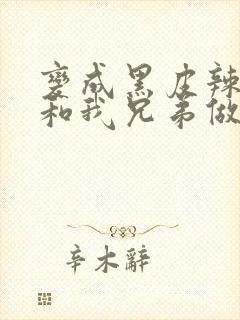 变成黑皮辣
和我兄弟做
辛木辭